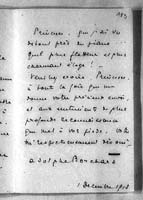 Princesse, qui j'ai vu
debout près du piano...
Quel plus flatteur et plus
charmant éloge !
Veuillez croire, Princesse,
à toute la joie que me
donne votre précieux envoi,
et aux sentiments de plus
profonde reconnaissance
que met à vos pieds, votre
très respectueusement dévoué
Adolphe Borchard
1 décembre 1908